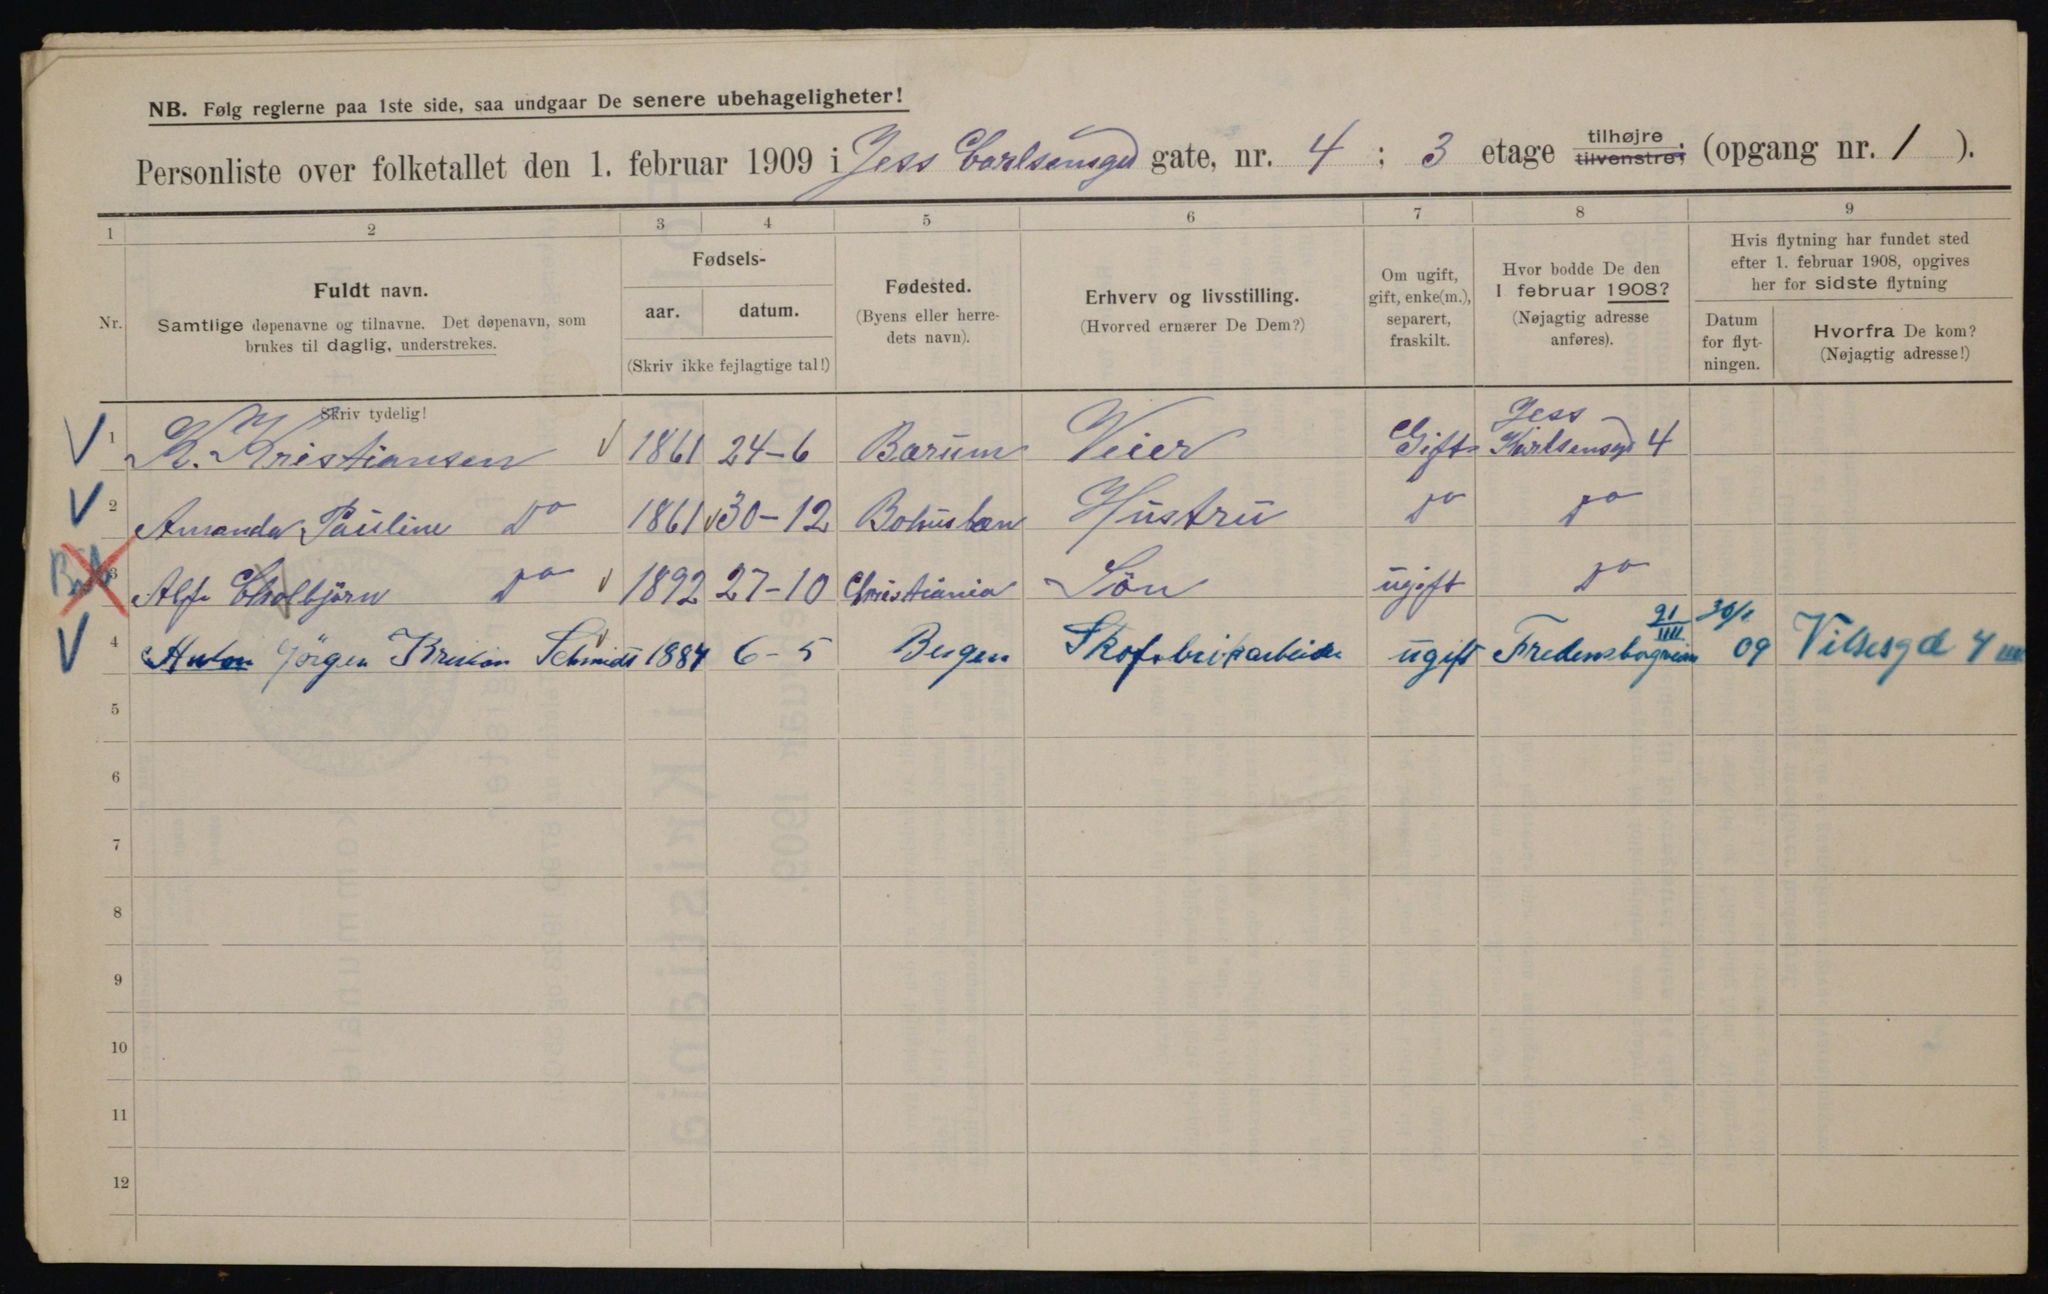 NB. Følg reglerne paa 1ste side, saa undgaar De senere ubehageligheter!
Personliste over folketallet den 1. februar 1909 i Jess Carlsensgd gate, nr. 4 ; 3 etage tilhøjre tilvenstre; (opgang nr. 1 ).
1 2 3 4 5 6 7 8 9
Nr. Fuldt navn. Samtlige døpenavne og tilnavne. Det døpenavn, som brukes til daglig, understrekes. Skriv tydelig!
Fødsels- aar. datum. (Skriv ikke fejlagtige tal!)
Fødested. (Byens eller herredets navn).
Erhverv og livsstilling. (Hvorved ernærer De Dem?)
Om ugift, gift, enke(m.), separert, fraskilt.
Hvor bodde De den 1 februar 1908? (Nøjagtig adresse anføres).
Hvis flytning har fundet sted efter 1. februar 1908, opgives her for sidste flytning
Datum for flytningen.
Hvorfra De kom? (Nøjagtig adresse!)
V 1 K. Kristiansen 1861 24-6 Bærum Veier Gift Jess Karlsensgd 4
V 2 Amanda Pauline Do 1861 30-12 Bohuslæn Hustru Do Do
3 Alf Do 1892 27-10 Christiania Sön ugift Do
V 4 Anton Jörgen Schmidt 1884 6-5 Bergen Skofabrikarbeider ugift Fredensborgveien 21 IIII 30/1 09 Vibesgd 4 IIII
5
6
7
8
9
10
11
12